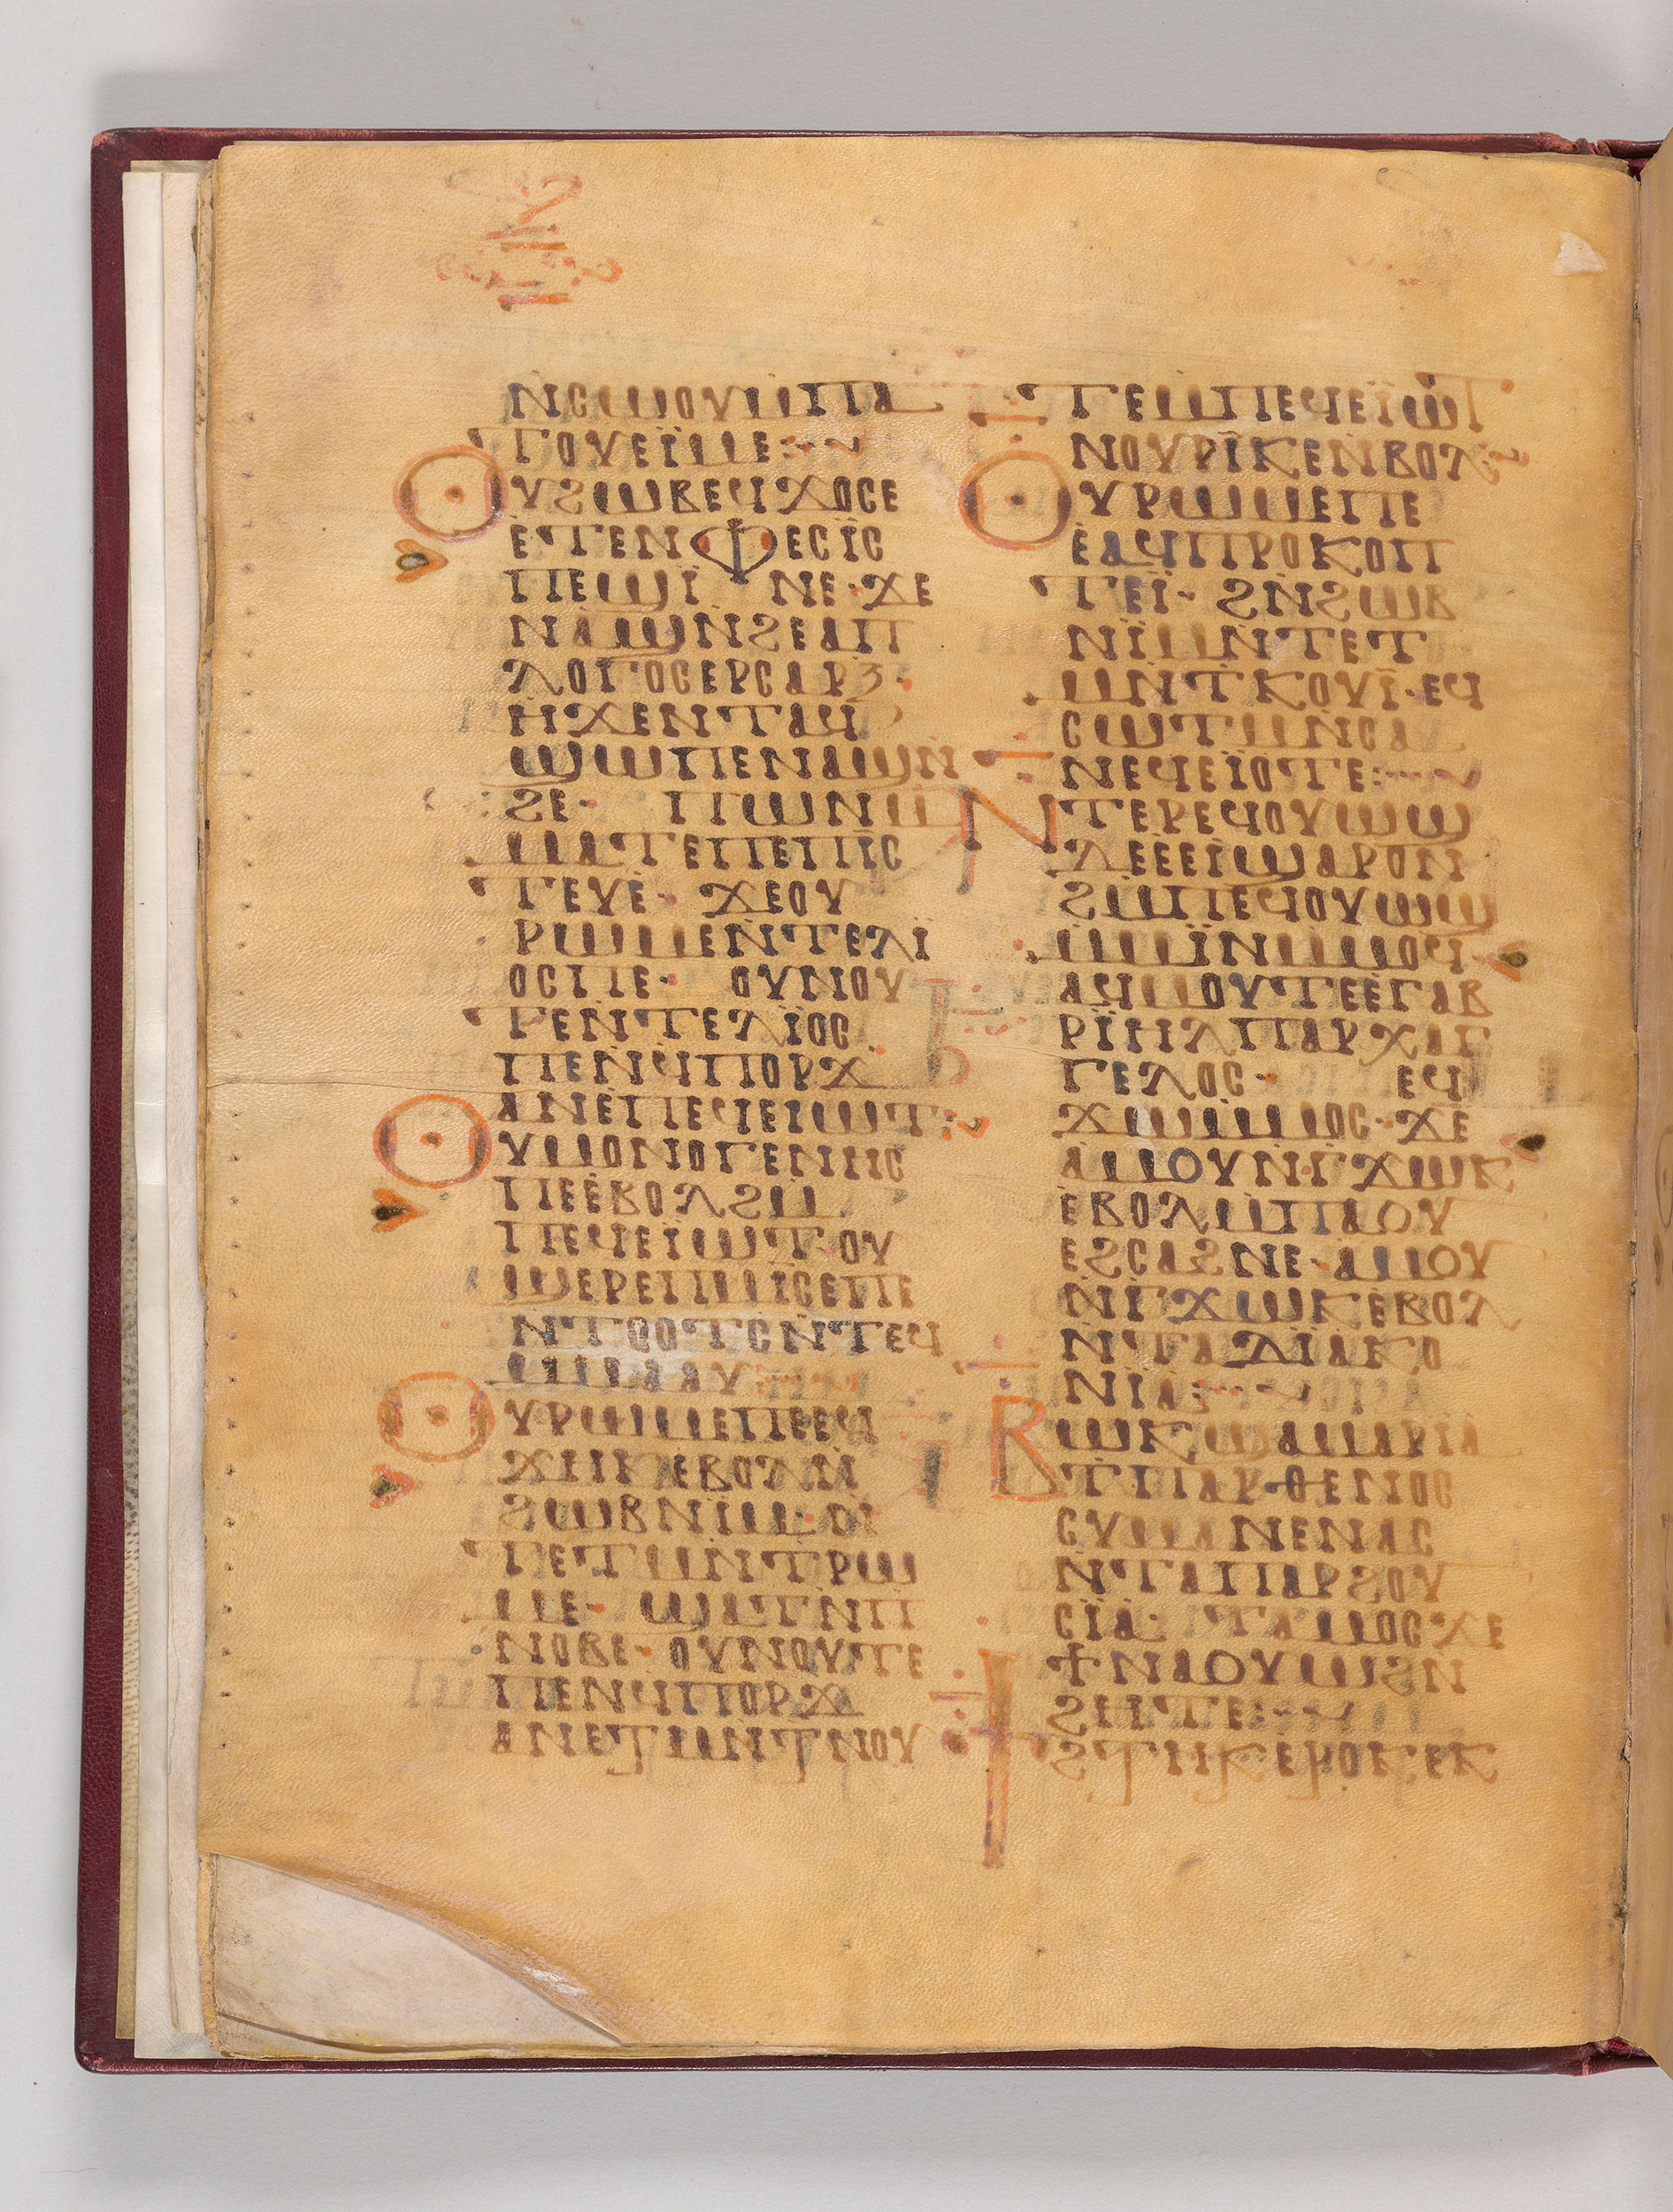 ⲚⲤⲰⲞⲨⲘⲠⲀ
ⲦⲞⲨⲈⲒⲘⲈ:
ⲞⲨϨⲰⲂⲈϤϪⲞⲤⲈ
ⲈⲦⲈⲚⲪⲈⲤⲒⲤ
ⲠⲈϢⲒⲚⲈ· ϪⲈ
ⲚⲀϢⲚϨⲈⲀⲠ
ⲖⲞⲄⲞⲤⲈⲢⲤⲀⲢⲜ·
ⲎϪⲈⲚⲦⲀϤ
ϢⲰⲠⲈⲚⲀϢⲚ
ϨⲈ· ⲠⲰⲚⲘ
ⲘⲀⲦⲈⲠⲈⲠⲒⲤ
ⲦⲈⲨⲈ· ϪⲈⲞⲨ
ⲢⲰⲘⲈⲚⲦⲈⲖⲒ
ⲞⲤⲠⲈ· ⲞⲨⲚⲞⲨ
ⲦⲈⲚⲦⲈⲖⲒⲞⲤ
ⲠⲈⲚϤⲠⲞⲢϪ
ⲀⲚⲈⲠⲈϤⲈⲒⲰⲦ:
ⲞⲨⲘⲞⲚⲞⲄⲈⲚⲎⲤ
ⲠⲈⲈⲂⲞⲖϨⲘ
ⲠⲈϤⲈⲒⲰⲦ·ⲞⲨ
ϢⲈⲢⲈⲠⲘⲒⲤⲈⲠⲈ
ⲚⲦⲞⲞⲦⲤⲚⲦⲈϤ
ⲘⲀⲀⲨ:
ⲞⲨⲢⲰⲘⲈⲠⲈⲈϤ
ϪⲎⲔⲈⲂⲞⲖⲚ
ϨⲰⲂⲚⲒⲘ·ⲚⲒ
ⲦⲈⲦⲘⲚⲦⲢⲰ
ⲘⲈ· ϢⲀⲦⲚⲠ
ⲚⲞⲂⲈ· ⲞⲨⲚⲞⲨⲦⲈ
ⲠⲈⲚϤⲠⲞⲢϪ
ⲀⲚⲈⲦⲘⲚⲦⲚⲞⲨ
ⲦⲈⲘⲠⲈϤⲈⲒⲰⲦ
ⲚⲞⲨⲢⲒⲔⲈⲚⲂⲞⲖ:
ⲞⲨⲢⲰⲘⲈⲠⲈ
ⲈⲀϤⲠⲢⲞⲔⲞⲠ
ⲦⲈⲒ· ϨⲚϨⲰⲂ
ⲚⲒⲘⲚⲦⲈⲦ
ⲘⲚⲦⲔⲞⲨⲒ·ⲈϤ
ⲤⲰⲦⲘⲚⲤⲀ
ⲚⲈϤⲈⲒⲞⲦⲈ:
ⲚⲦⲈⲢⲈϤⲞⲨⲰϢ
ⲀⲈⲈⲈⲒϢⲀⲢⲞⲚ
ϨⲘⲠⲈϤⲞⲨⲰϢ
ⲘⲘⲒⲚⲘⲘⲞϤ·
ⲀϤⲘⲞⲨⲦⲈⲈⲄⲀⲂ
ⲢⲒⲎⲖⲠⲀⲢⲬⲀⲄ
ⲄⲈⲖⲞⲤ· ⲈϤ
ϪⲰⲘⲘⲞⲤ·ϪⲈ
ⲀⲘⲞⲨⲚⲄϪⲰⲔ
ⲈⲂⲞⲖⲘⲠⲀⲞⲨ
ⲈϨⲤⲀϨⲚⲈ·ⲀⲘⲞⲨ
ⲚⲄϪⲰⲔⲈⲂⲞⲖ
ⲚⲦⲀⲆⲒⲀⲔⲞ
ⲚⲒⲀ:
ⲂⲰⲔϢⲀⲘⲀⲢⲒⲀ
ⲦⲠⲀⲢⲐⲈⲚⲞⲤ
ⲤⲨⲘⲀⲚⲈⲚⲀⲤ
ⲚⲦⲀⲠⲀⲢϨⲞⲨ
ⲤⲒⲀ· ⲦⲀⲘⲞⲤϪⲈ
ϮⲚⲀⲞⲨⲰϨⲚ
ϨⲎⲦⲈ: